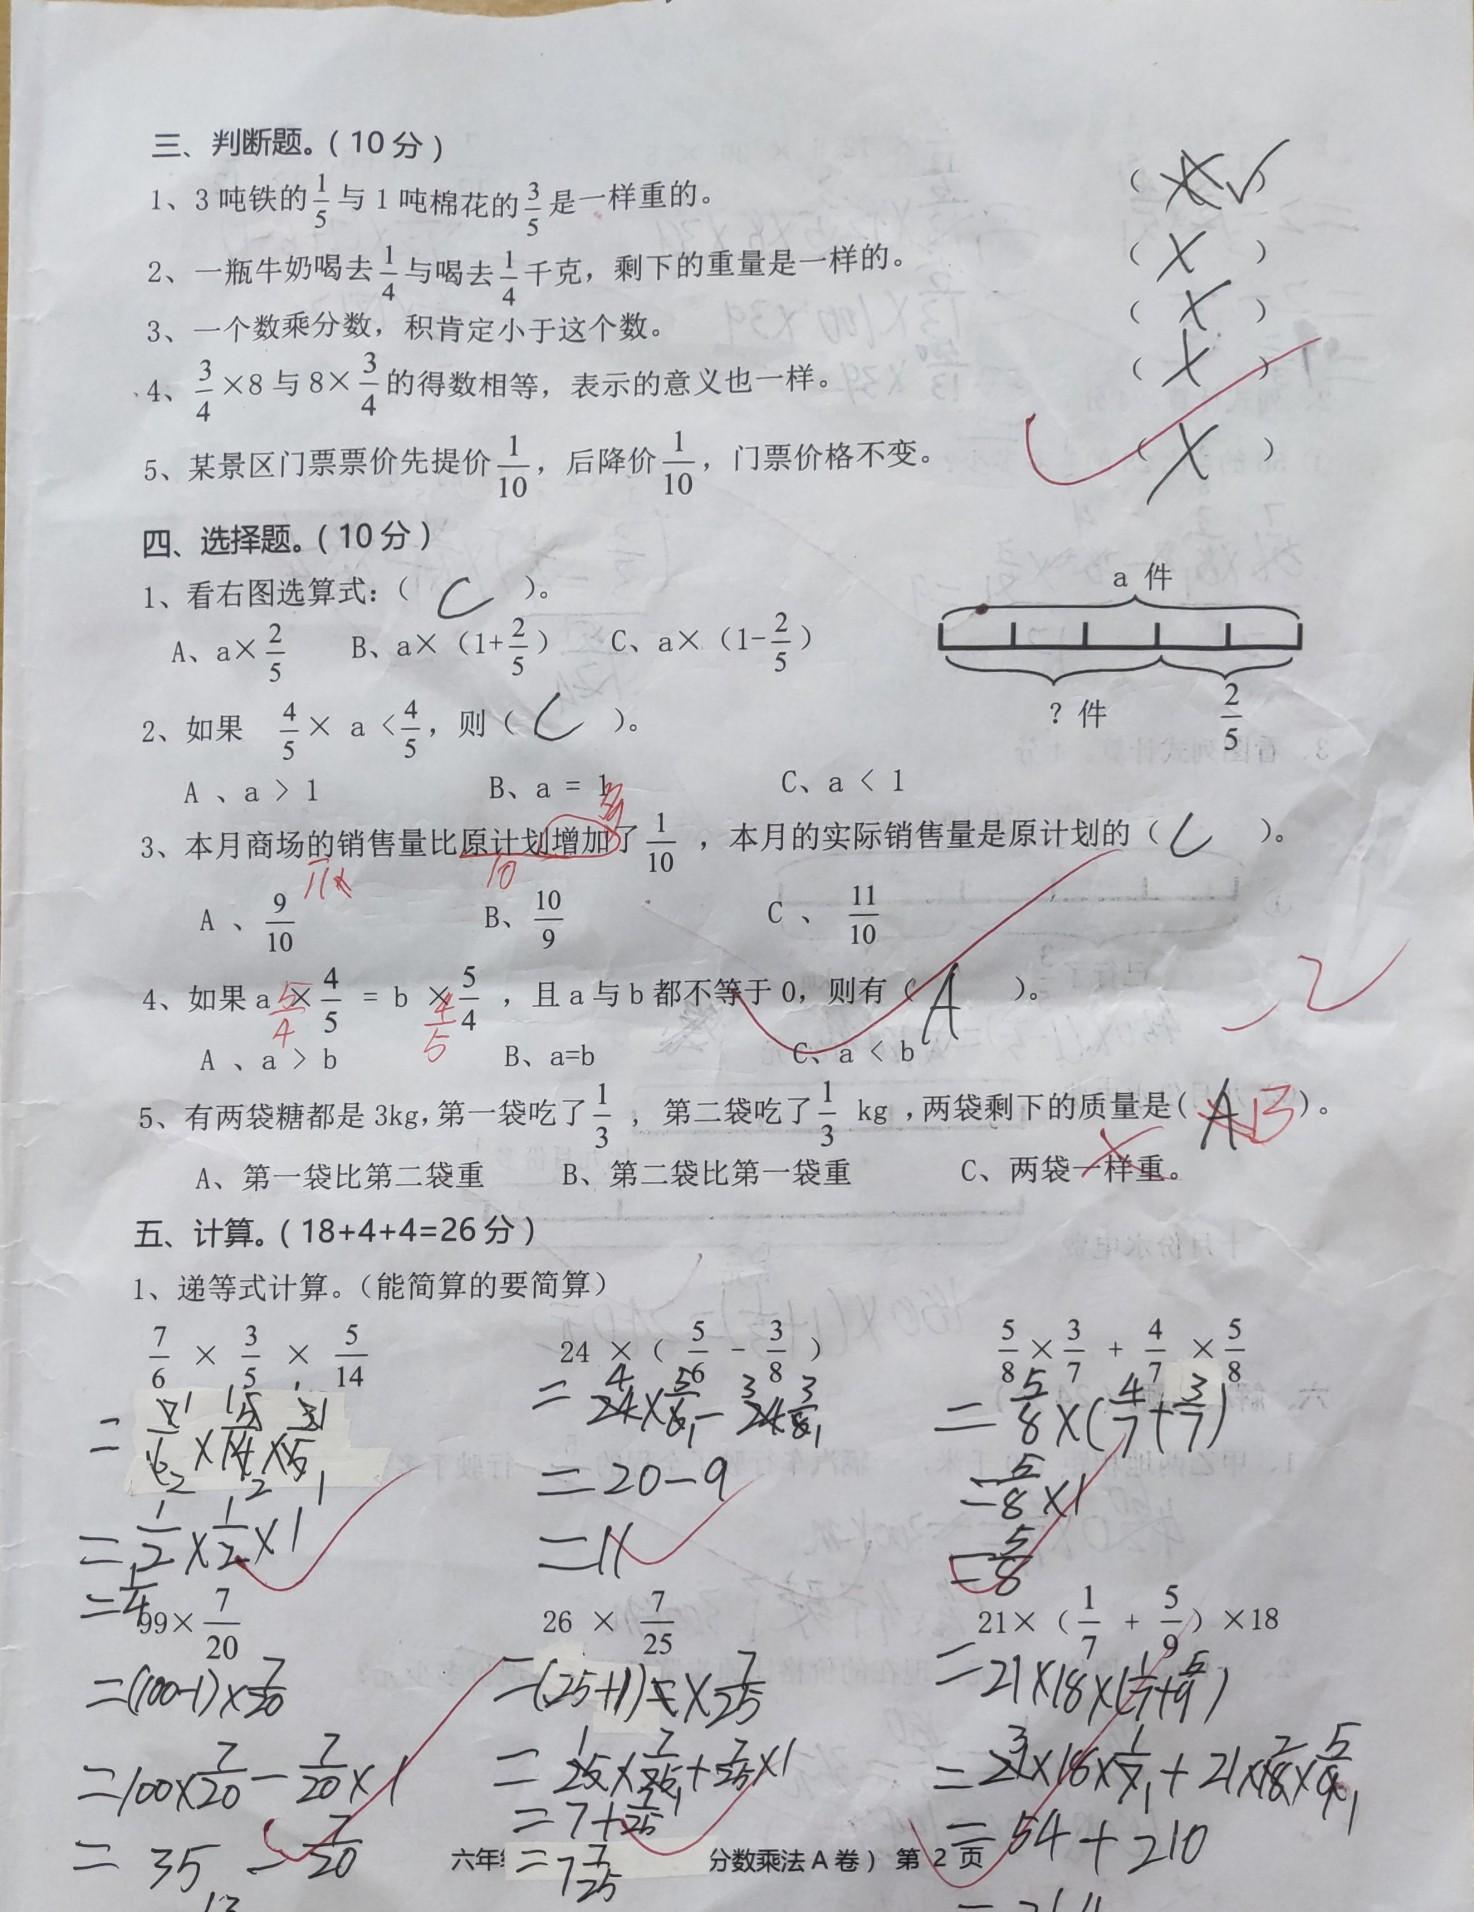 三、判断题。(10分)
1、3吨铁的1/5与1吨棉花的3/5是一样重的。 (✓)
2、一瓶牛奶喝去1/4与喝去1/4千克，剩下的重量是一样的。 (X)
3、一个数乘分数，积肯定小于这个数。 (X)
4、3/4×8与8×3/4的得数相等，表示的意义也一样。 (X)
5、某景区门票票价先提价1/10，后降价1/10，门票价格不变。 (X)
四、选择题。(10分)
1、看右图选算式：( C )。
a 件
A、a×2/5 B、a×（1+2/5） C、a×（1-2/5）
? 件 2/5
2、如果 4/5× a <4/5，则( C )。
A、a > 1 B、a = 1 C、a < 1
3、本月商场的销售量比原计划增加了1/10，本月的实际销售量是原计划的( C )。
11 10
A、9/10 B、10/9 C、11/10
4、如果a×4/5 = b ×5/4，且a与b都不等于0，则有( A )。
5/4 4/5
A、a > b B、a=b C、a < b
2
5、有两袋糖都是3kg,第一袋吃了1/3，第二袋吃了1/3 kg,两袋剩下的质量是( A B )。
A、第一袋比第二袋重 B、第二袋比第一袋重 C、两袋一样重。
五、计算。(18+4+4=26分)
1、递等式计算。（能简算的要简算）
7/6 × 3/5 × 5/14 24 ×( 5/6 - 3/8 ) 5/8×3/7 + 4/7 ×5/8
=24×5/6-24×3/8 =5/8×(4/7+3/7)
=20-9 =5/8×1
=1/2×1/2×1 =11 =5/8
=1/4
99×7/20 26 × 7/25 21×( 1/7 + 5/9 )×18
=(100-1)×7/20 =(25+1)×7/25 =21×18×(1/7+5/9)
=100×7/20-7/20×1 =25×7/25+7/25×1 =21×18×1/7+21×18×5/9
=35-7/20 =7+7/25 =54+210
六年 =7 7/25 分数乘法A卷) 第 2 页